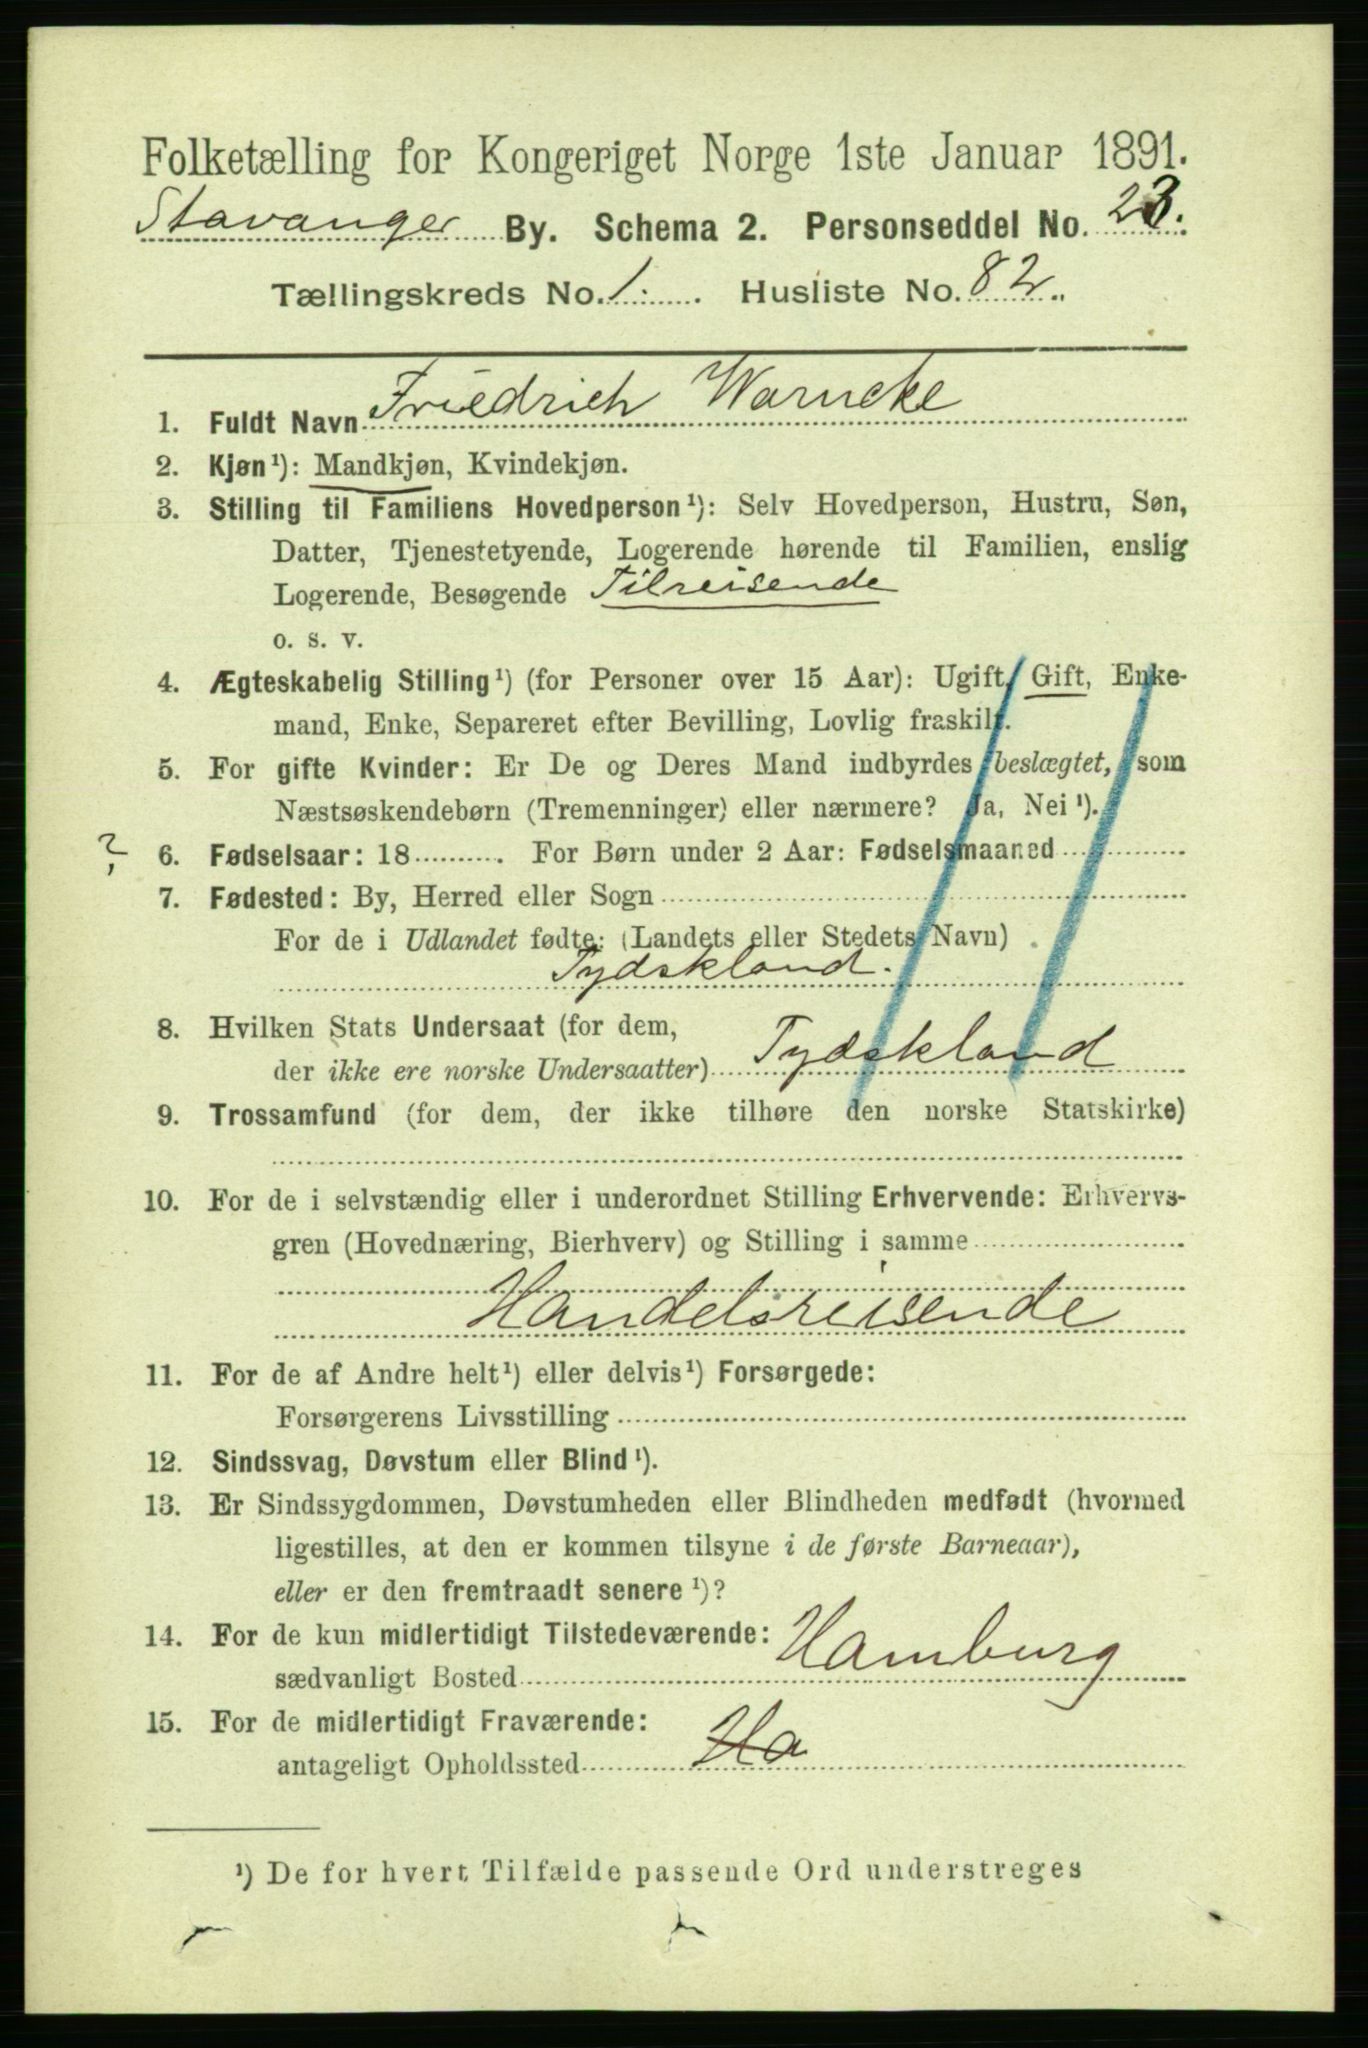 Folketælling for Kongeriget Norge 1ste Januar 1891.
Stavanger By. Schema 2. Personseddel No. 23.
Tællingskreds No. 1. Husliste No. 82.
1. Fuldt Navn Friedrich Warncke
2. Kjøn¹): Mandkjøn, Kvindekjøn.
3. Stilling til Familiens Hovedperson¹): Selv Hovedperson, Hustru, Søn,
Datter, Tjenestetyende, Logerende hørende til Familien, enslig
Logerende, Besøgende Tilreisende
o. s. v.
4. Ægteskabelig Stilling¹) (for Personer over 15 Aar): Ugift, Gift, Enke-
mand, Enke, Separeret efter Bevilling, Lovlig fraskilt.
5. For gifte Kvinder: Er De og Deres Mand indbyrdes beslægtet, som
Næstsøskendebørn (Tremenninger) eller nærmere? Ja, Nei¹).
? 6. Fødselsaar: 18 . For Børn under 2 Aar: Fødselsmaaned
7. Fødested: By, Herred eller Sogn
For de i Udlandet fødte: (Landets eller Stedets Navn)
Tydskland.
8. Hvilken Stats Undersaat (for dem,
der ikke ere norske Undersaatter) Tydskland
9. Trossamfund (for dem, der ikke tilhøre den norske Statskirke)
10. For de i selvstændig eller i underordnet Stilling Erhvervende: Erhvervs-
gren (Hovednæring, Bierhverv) og Stilling i samme
Handelsreisende
11. For de af Andre helt¹) eller delvis¹) Forsørgede:
Forsørgerens Livsstilling
12. Sindssvag, Døvstum eller Blind¹).
13. Er Sindssygdommen, Døvstumheden eller Blindheden medfødt (hvormed
ligestilles, at den er kommen tilsyne i de første Barneaar),
eller er den fremtraadt senere¹)?
14. For de kun midlertidigt Tilstedeværende:
sædvanligt Bosted Hamburg
15. For de midlertidigt Fraværende:
antageligt Opholdssted Ha
¹) De for hvert Tilfælde passende Ord understreges